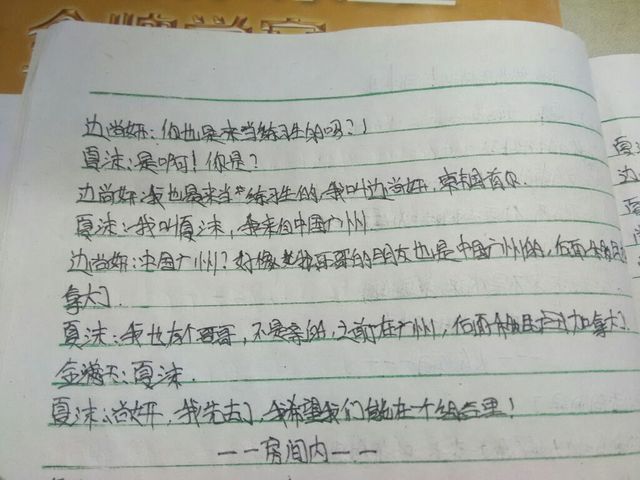 边尚妍：你也是来当练习生的吗？
夏沫：是啊！你是？
边尚妍：我也是来当练习生的，我叫边尚妍，来韩国首尔．
夏沫：我叫夏沫，我来自中国广州
边尚妍：中国广州？好像我哥哥的朋友也是中国广州的，后面移民
拿大了．
夏沫：我也有个哥哥，不是亲的，之前在广州，后面移民去了加拿大了．
金：夏沫．
夏沫：尚妍，我先去了，我希望我们能在一个组合里！
－－房间内－－
夏
边
夏